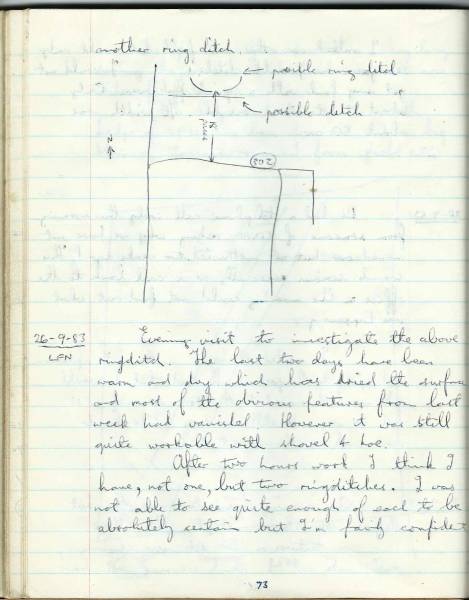 another ring ditch.
possible ring ditch
possible ditch
paces
N
203
26-9-83
LFN
Evening visit to investigate the above
ringditch. The last two days have been
warm and dry which has dried the surface
and most of the obvious features from last
week had vanished. However it was still
quite workable with shovel & hoe.
After two hours work I think I
have, not one, but two ringditches. I was
not able to see quite enough of each to be
absolutely certain but I'm fairly confident
73